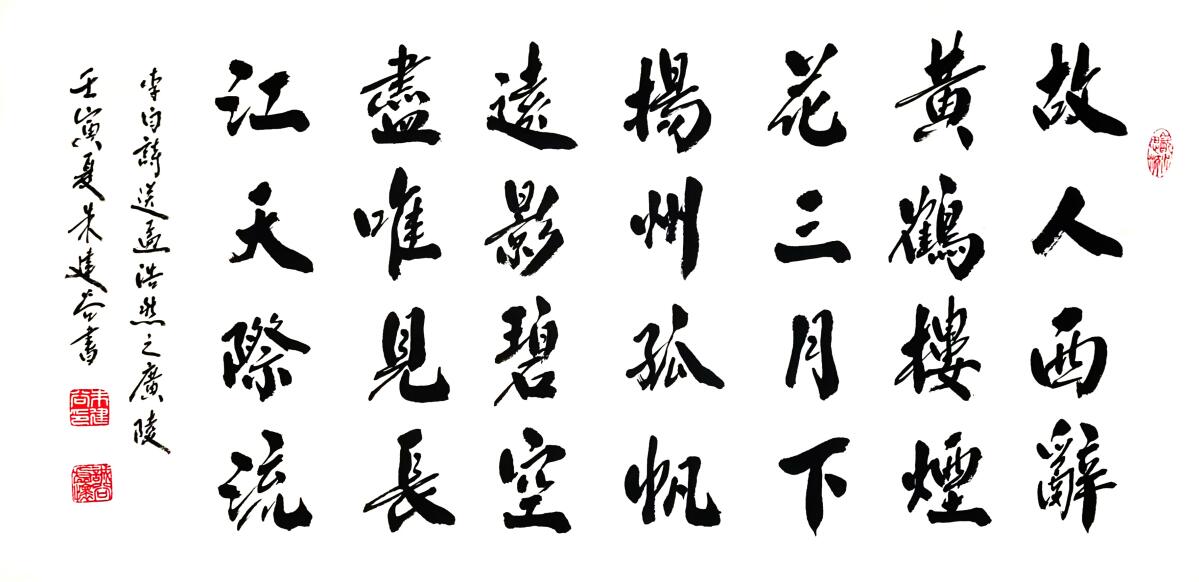 故人西辭
黃鶴樓煙
花三月下
揚州孤帆
遠影碧空
盡唯見長
江天際流
李白詩送孟浩然之廣陵
壬寅夏朱建谷書
朱建谷印